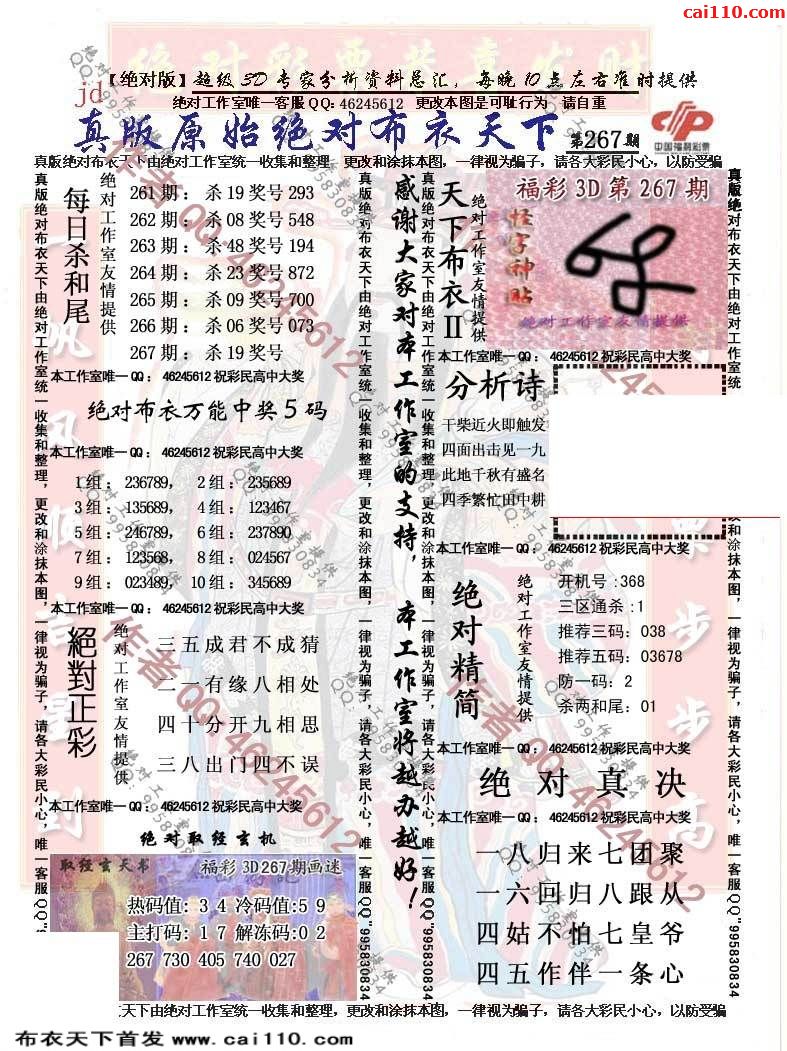 cai110.com
绝对彩票共享发财
jd
【绝对版】超级3D专家分析资料总汇，每晚10点左右准时提供
绝对工作室唯一客服QQ: 46245612 更改本图是可耻行为 请自重
真版原始绝对布衣天下 第267期
中国福利彩票
真版绝对布衣天下由绝对工作室统一收集和整理，更改和涂抹本图，一律视为骗子，请各大彩民小心，以防受骗
真版绝对布衣天下由绝对工作室统一收集和整理，更改和涂抹本图，一律视为骗子，请各大彩民小心，唯一客服QQ"
每日杀和尾
绝对工作室友情提供
261期：杀19奖号293
262期：杀08奖号548
263期：杀48奖号194
264期：杀23奖号872
265期：杀09奖号700
266期：杀06奖号073
267期：杀19奖号
本工作室唯一QQ：46245612祝彩民高中大奖
绝对布衣万能中奖5码
本工作室唯一QQ：46245612祝彩民高中大奖
1组：236789，2组：235689
3组：135689，4组：123467
5组：246789，6组：237890
7组：123568，8组：024567
9组：023489，10组：345689
本工作室唯一QQ：46245612祝彩民高中大奖
絕對正彩
绝对工作室友情提供
三五成君不成猜
二一有缘八相处
四十分开九相思
三八出门四不误
本工作室唯一QQ：46245612祝彩民高中大奖
绝对取经玄机
取经玄天书
福彩3D267期画迷
热码值：3 4冷码值:5 9
主打码：1 7解冻码:0 2
267 730 405 740 027
真版绝对布衣天下由绝对工作室统一收集和整理，更改和涂抹本图，一律视为骗子，请各大彩民小心，唯一客服QQ"995830834
感谢大家对本工作室的支持，本工作室将越办越好！
真版绝对布衣天下由绝对工作室统一收集和整理，更改和涂抹本图，一律视为骗子，请各大彩民小心，唯一客服QQ"995830834
天下布衣II
绝对工作室友情提供
福彩3D第267期
怪字神贴
绝对工作室友情提供
本工作室唯一QQ：46245612祝彩民高中大奖
分析诗
干柴近火即触发
四面出击见一九
此地千秋有盛名
四季繁忙田中耕
本工作室唯一QQ：46245612祝彩民高中大奖
绝对精简
绝对工作室友情提供
开机号:368
三区通杀:1
推荐三码：038
推荐五码：03678
防一码：2
杀两和尾：01
本工作室唯一QQ：46245612祝彩民高中大奖
绝对真决
本工作室唯一QQ：46245612祝彩民高中大奖
一八归来七团聚
一六回归八跟从
四姑不怕七皇爷
四五作伴一条心
作者QQ:46245612
绝对工作室提供
QQ:995830834
天下由绝对工作室统一收集和整理，更改和涂抹本图，一律视为骗子，请各大彩民小心，以防受骗
布衣天下首发 www.cai110.com